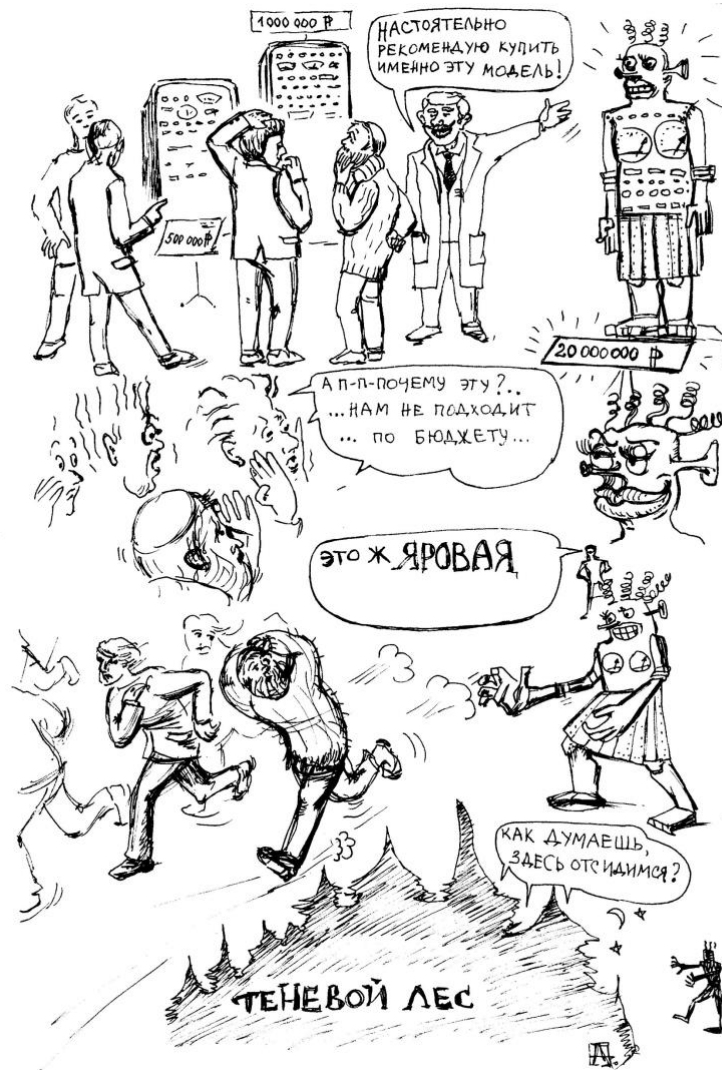 1000 000 ₽
НАСТОЯТЕЛЬНО
РЕКОМЕНДУЮ КУПИТЬ
ИМЕННО ЭТУ МОДЕЛЬ!
500 000 ₽
20 000 000 ₽
А П-П-ПОЧЕМУ ЭТУ?..
...НАМ НЕ ПОДХОДИТ
... ПО БЮДЖЕТУ...
ЭТО Ж ЯРОВАЯ
КАК ДУМАЕШЬ,
ЗДЕСЬ ОТСИДИМСЯ?
ТЕНЕВОЙ ЛЕС